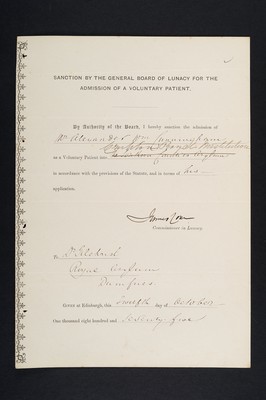 SANCTION BY THE GENERAL BOARD OF LUNACY FOR THE
ADMISSION OF A VOLUNTARY PATIENT.
By Authority of the Board, I hereby sanction the admission of
Mr Alexander
Crichton Royal Institution
as a Voluntary Patient into
in accordance with the provisions of the Statute, and in terms of his
application.
James Coxe
Commissioner in Lunacy.
To
Royal Asylum
Dumfries
Given at Edinburgh, this twelfth day of October
One thousand eight hundred and Seventy five